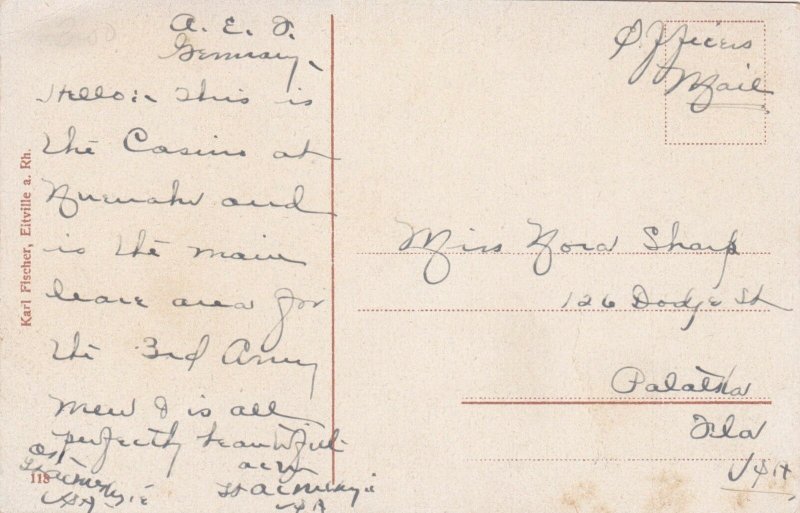 A. E. F.
Germany
Hello:- This is
the Casino at
and
is the main
leave area for
the 3rd Army
Men & is all
perfectly beautiful
USA
USA
Officers
Mail
Miss Nora Sharp
126 Dodge St
Palatka
Fla
USA
Karl Fischer, Eltville a. Rh.
113